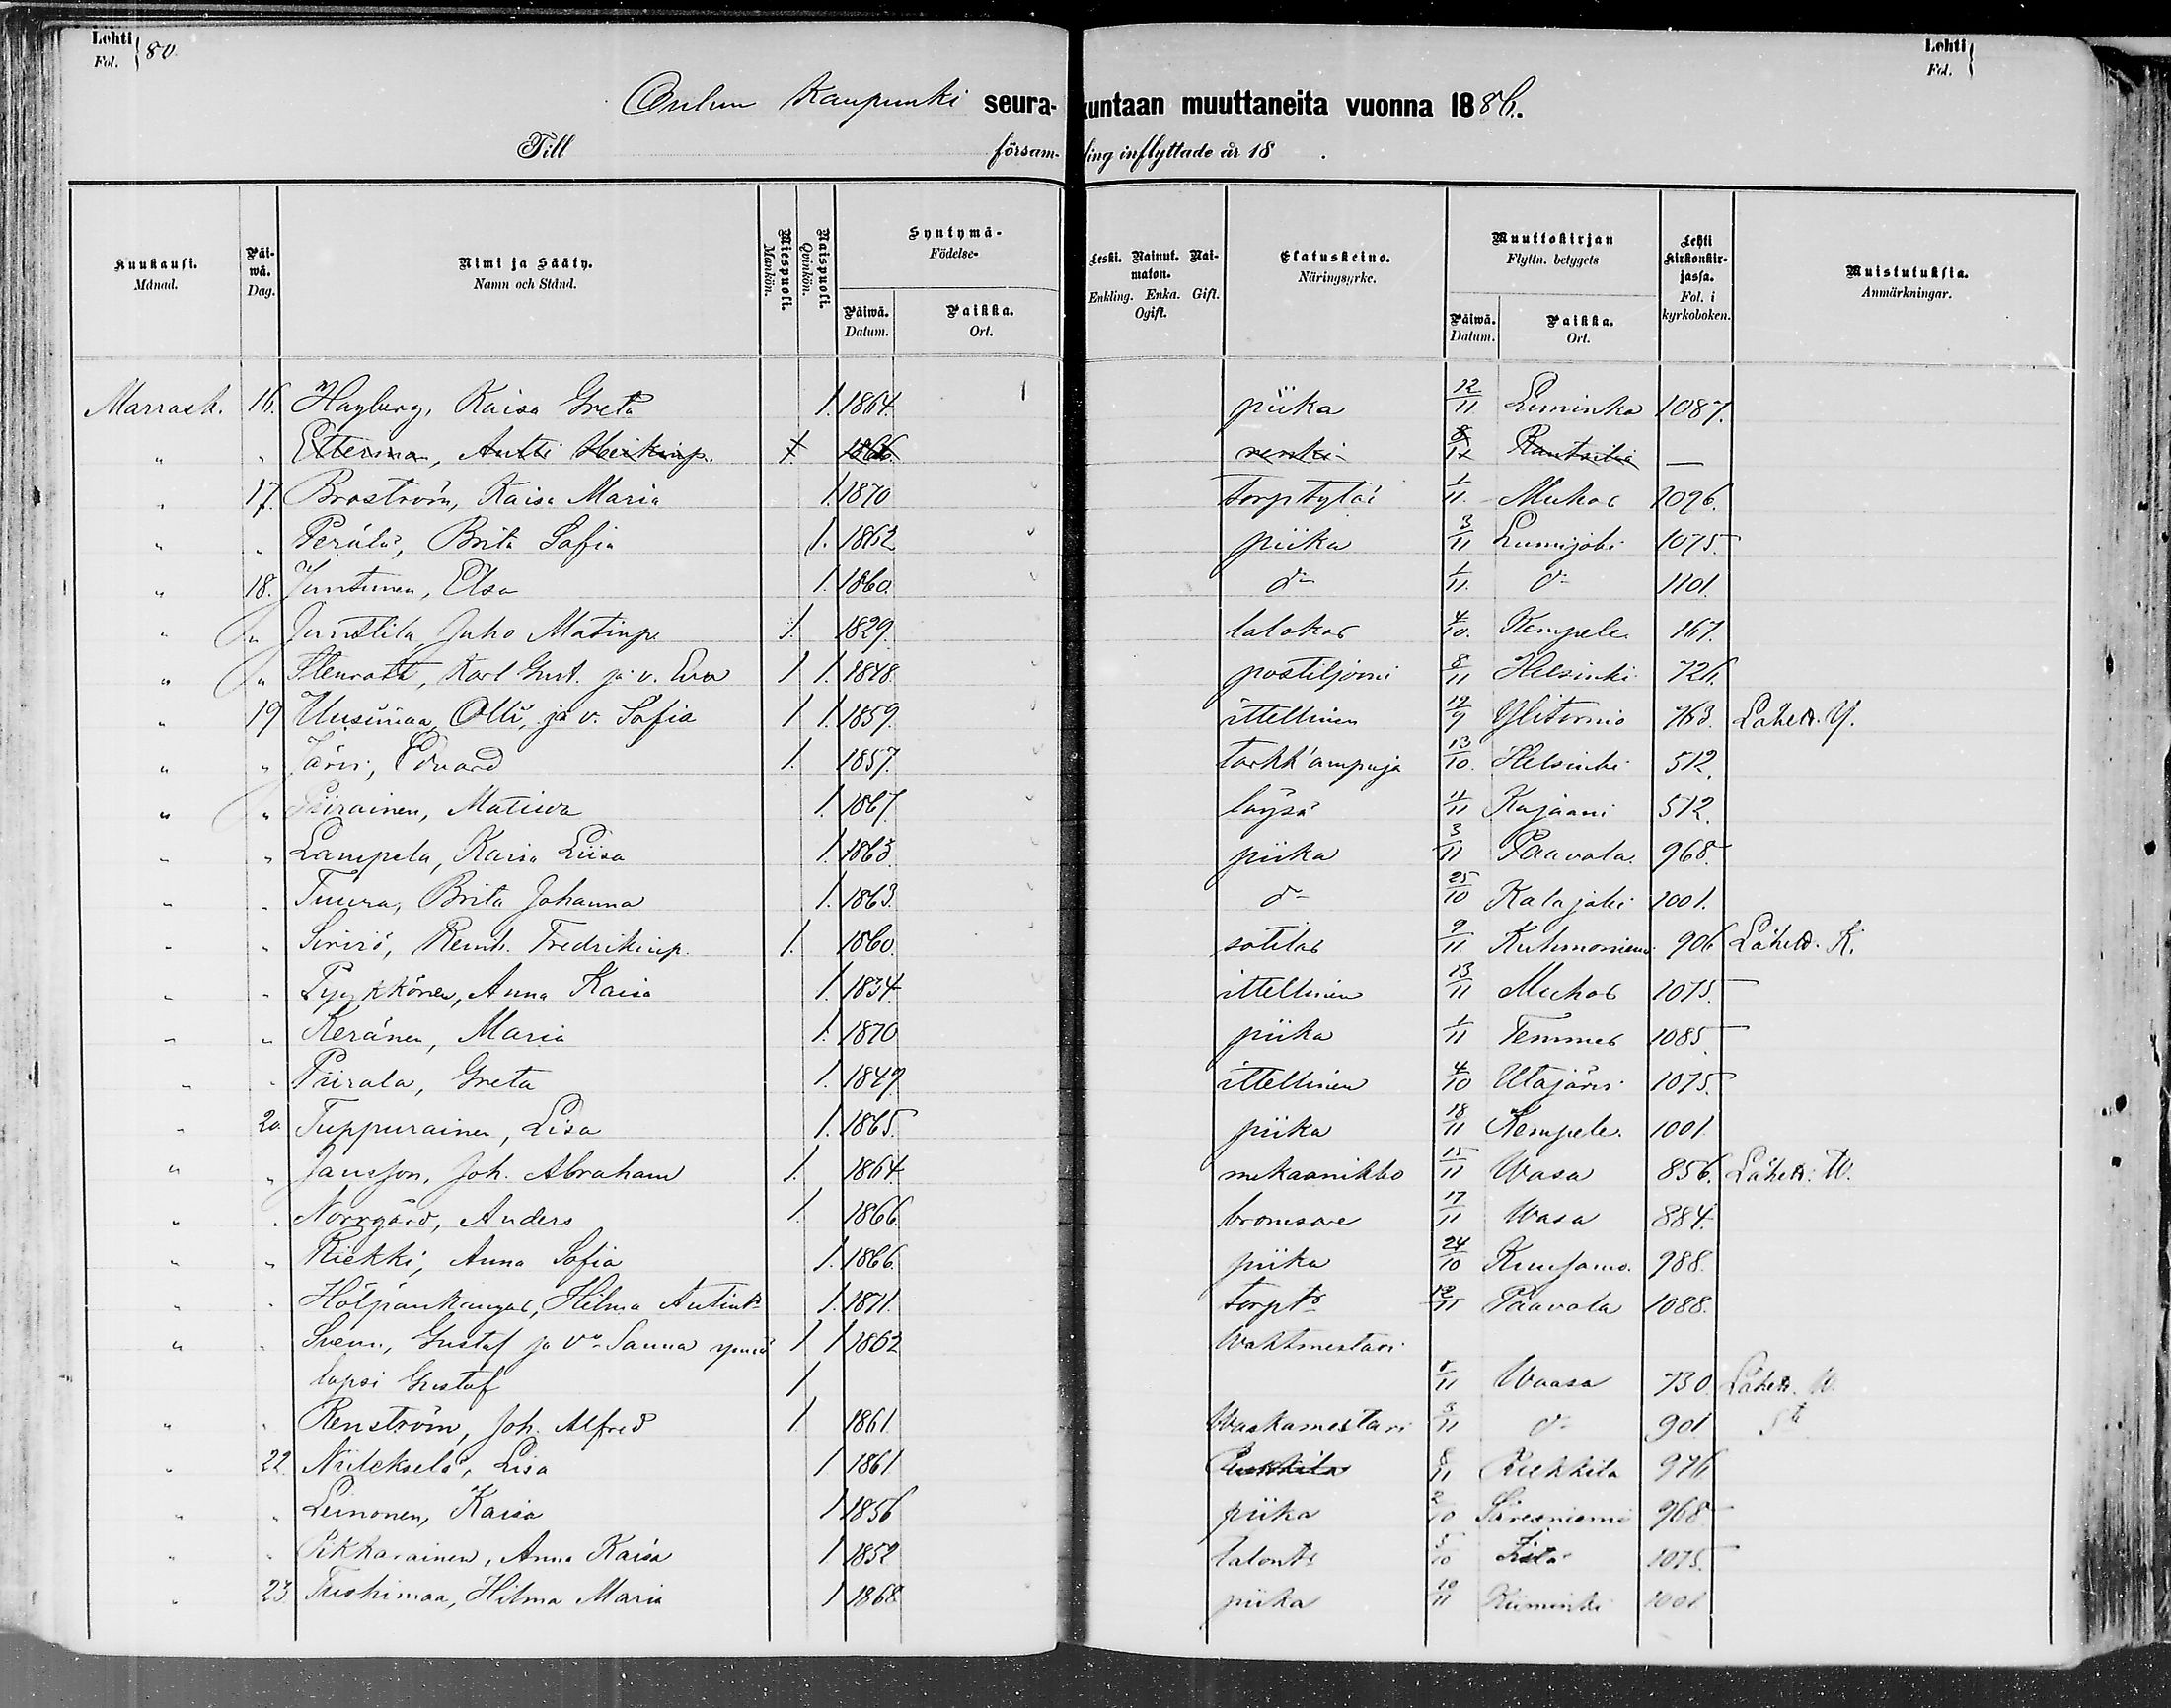 Lohti Fol. 80.
Lohti Fol.
Oulun Kaupunki seura-kuntaan muuttaneita vuonna 1886.
Till församling inflyttade år 18 .
Kuukausi. Månad.
Päiwä. Dag.
Nimi ja Sääty. Namn och Stånd.
Miespuoli. Mankön.
Naispuoli. Qvinkön.
Syntymä- Födelse-
Päiwä. Datum.
Paikka. Ort.
Leski. Nainut. Naimaton. Enkling. Enka. Gift. Ogift.
Elatuskeino. Näringsyrke.
Muuttokirjan Flyttn. betygets
Päiwä. Datum.
Paikka. Ort.
Lehti Kirkonkirjassa. Fol. i kyrkoboken.
Muistutuksia. Anmärkningar.
Marrask. 16. Hagberg, Kaisa Greta 1. 1864. piika 12/11 Liminka 1087.
" " Etterman, Antti Heikinp. 1. 1866. renki 8/11 Rantsila —
" 17. Broström, Kaisa Maria 1. 1870 torp tytär 1/11. Muhos 1096.
" " Perälä, Brita Sofia 1. 1862 piika 3/11 Lumijoki 1075.
" 18. Juntunen, Elsa 1. 1860. d:o 1/11. d:o 1101.
" " Junttila Juho Matinp. 1. 1829. talokas 4/10. Kempele 167.
" " Stenrott, Karl Gust. ja v. Eva 1 1. 1848. postiljooni 8/11 Helsinki 726.
" 19 Uusimaa, Olli, ja v. Sofia 1 1. 1859. ittellinen 12/9 Ylitornio 763. Lähett. Y.
" " Järvi, Edvard 1. 1857. tarkk'ampuja 13/10. Helsinki 512.
" " Piirainen, Matilda 1. 1867. löysä 11/11 Kajaani 512.
" " Lampela, Kaisa Liisa 1. 1863. piika 3/11 Paavola 968.
" " Tuura, Brita Johanna 1. 1863. d:o 25/10 Kalajoki 1001.
" " Siriö, Reinh. Fredrikinp. 1. 1860. sotilas 9/11. Kuhmoniemi 906 Lähett. K.
" " Pyykkönen, Anna Kaisa 1. 1834. ittellinen 13/11 Muhos 1075.
" " Keränen, Maria 1. 1870 piika 1/11 Temmes 1085
" " Piirala, Greta 1. 1847. ittellinen 4/10 Utajärvi 1075.
" 20 Tuppurainen, Lisa 1. 1865. piika 18/11 Kempele. 1001
" " Jansson, Joh. Abraham 1. 1864. mekaanikko 15/11 Wasa 856. Lähett. W.
" " Norrgård, Anders 1. 1866. 17/11 Wasa 884.
" " Riekki, Anna Sofia 1. 1866. piika 24/10 Kuusamo. 988.
" " Hölpänkangas, Hilma Antint. 1. 1871. torp t:r 12/11 Paavola 1088.
" " Sveni, Gustaf ja v:o Sanna ynnä 1 1 1862 Wahtmestari
lapsi Gustaf 1 8/11 Waasa 730. Lähett. W.
" " Renström, Joh. Alfred 1. 1861. Waskamestari 3/11 d:o 901
" 22. Niileksela, Lisa 1 1861 8/11 Piekkila 976
" " Leinonen, Kaisa 1 1856 piika 2/10 Säresniemi 968
" " Pikkarainen, Anna Kaisa 1 1852 talont. 5/10 1075.
" 23 Tuohimaa, Hilma Maria 1 1868 piika 10/11 Kiiminki 1001